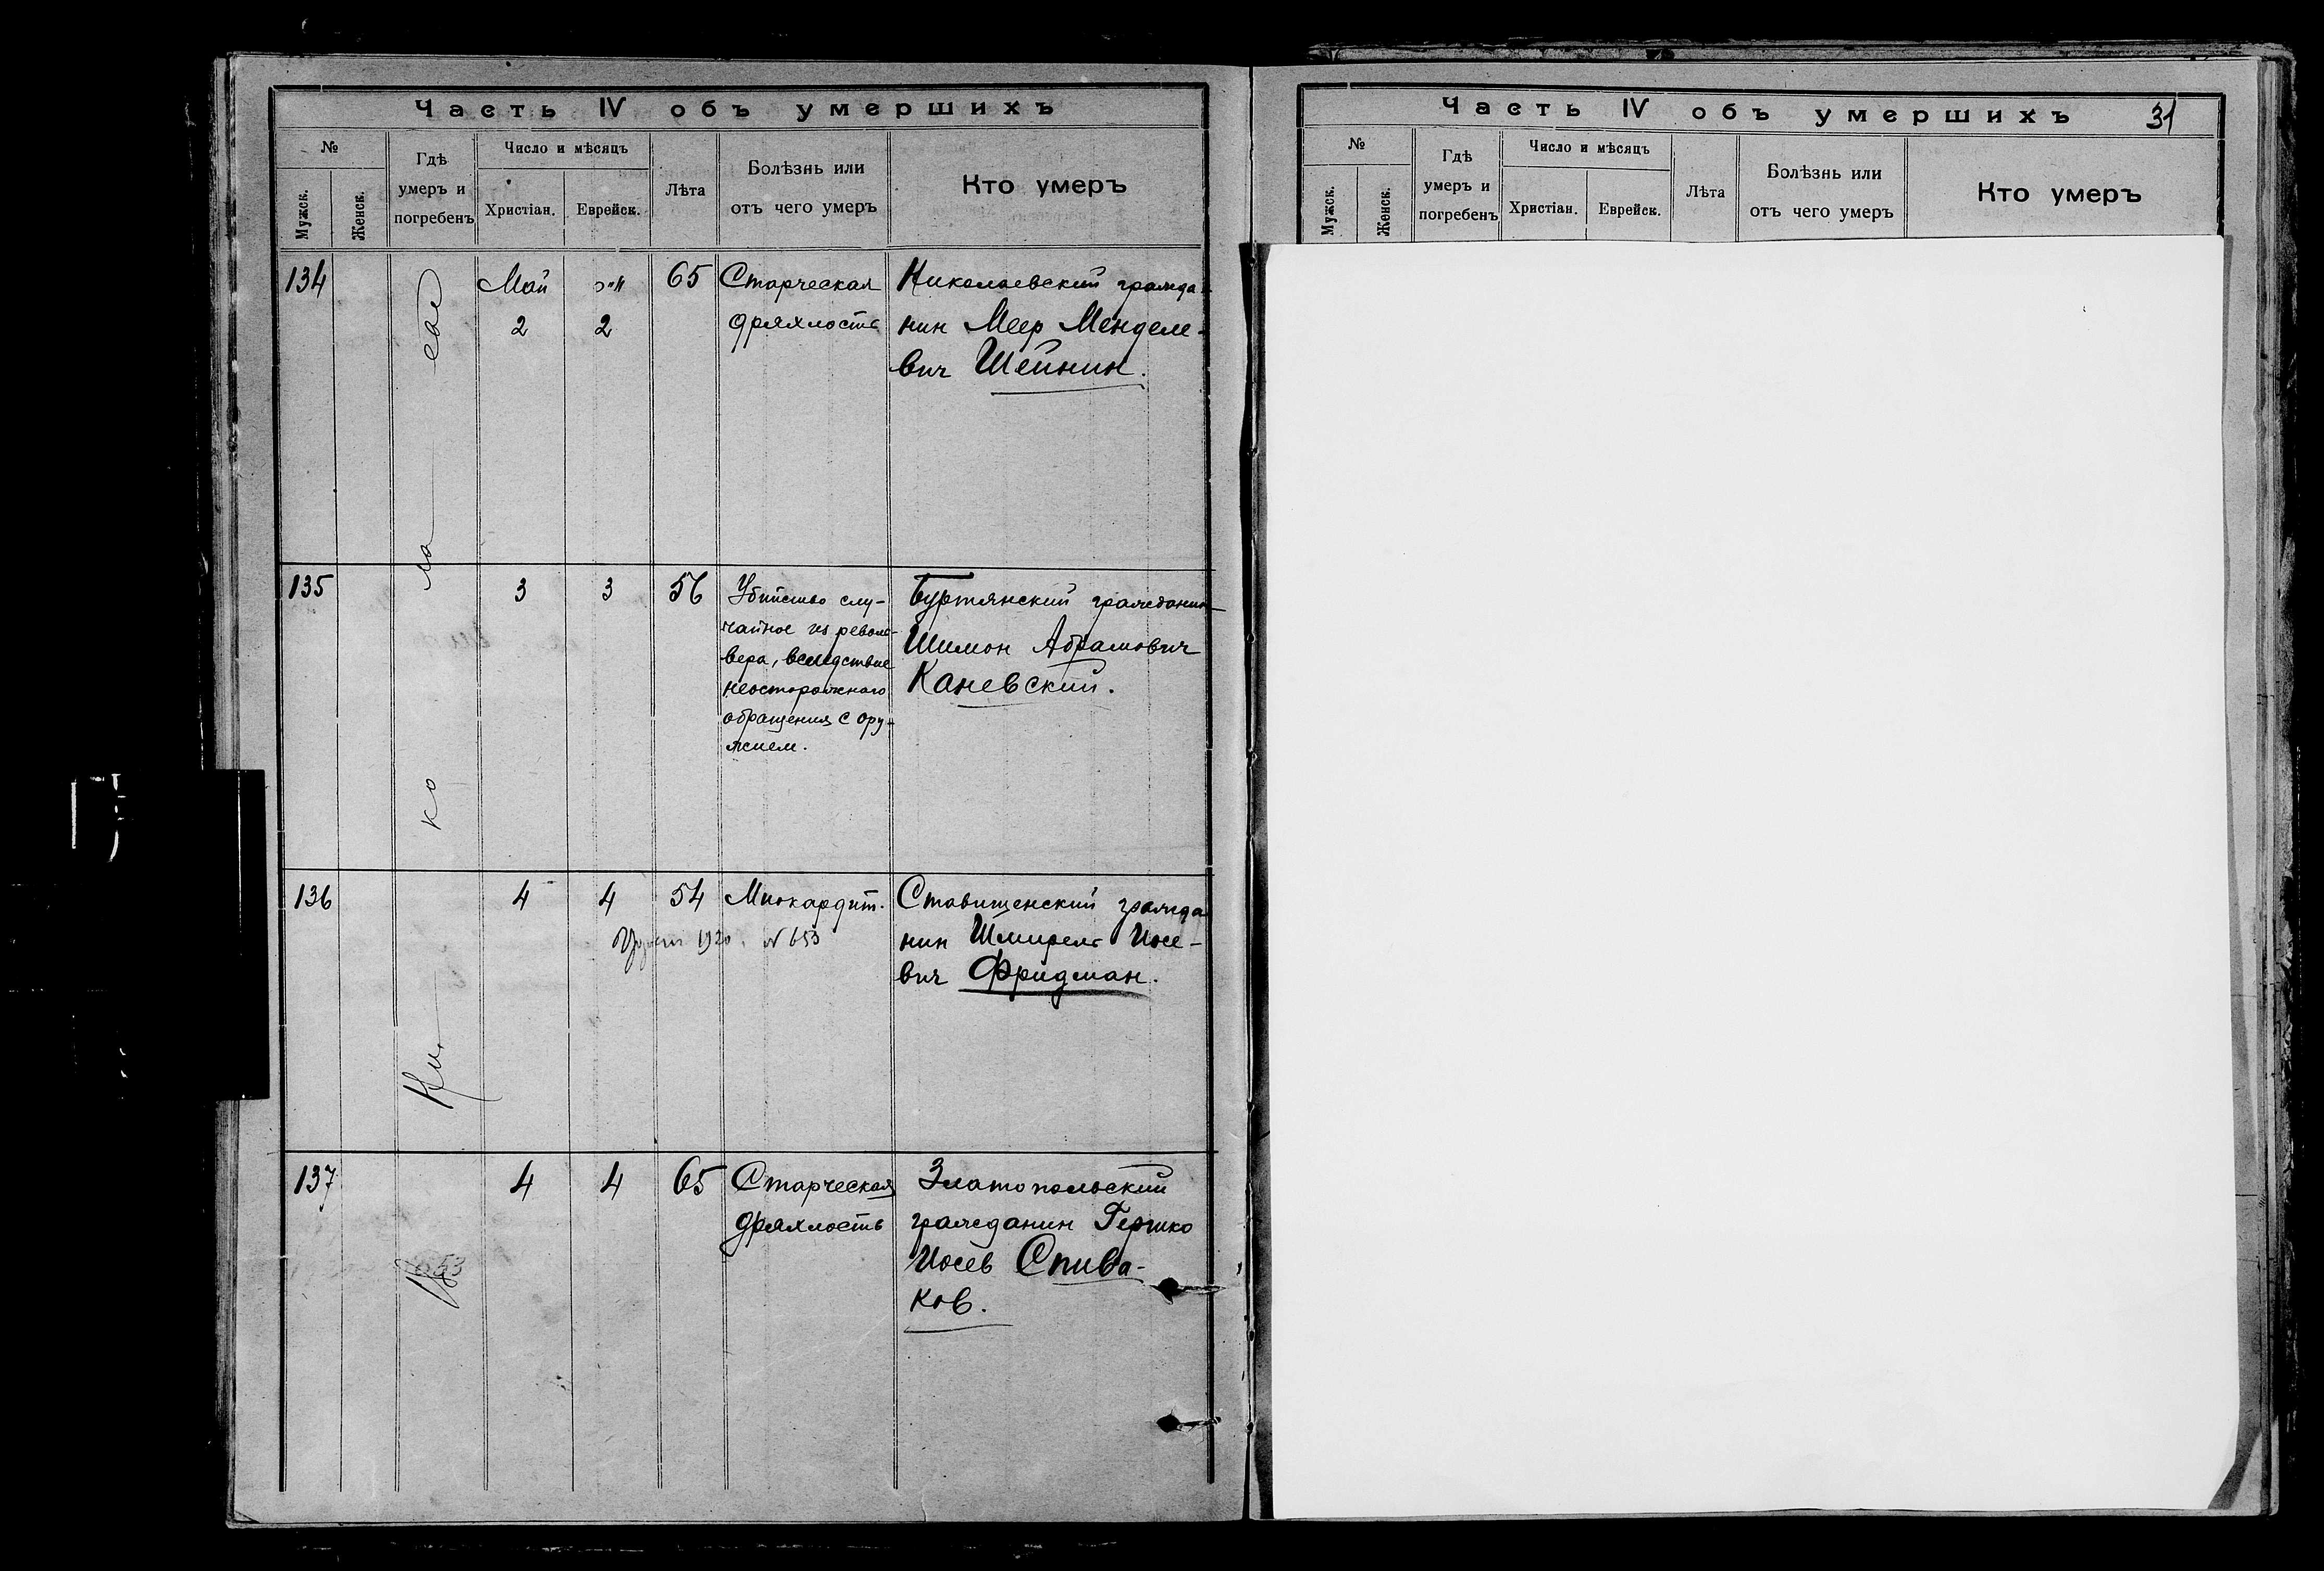 Часть IV объ умершихъ
№
Мужск.
Женск.
Гдѣ
умеръ и
погребенъ
Число и мѣсяцъ
Христіан.
Еврейск.
Лѣта
Болѣзнь или
отъ чего умеръ
Кто умеръ
134
Май
2
2
65
Старческая
дряхлость
Николаевский гражда
нин Меер Менделе-
вич Шейнин.
135
3
3
56
Убийство слу-
чайное из револь-
вера, вследствие
неосторожнаго
обращения с ору-
жием.
Буртянский гражданин
Шимон Абрамович
Каневский.
136
4
4
54
Миокардит.
1920 . № 653
Ставищенский гражда
нин Иосе-
вич Фридман.
137
4
4
65
Старческая
дряхлость
Златопольский
гражданин Гершко
Иосев Спива-
ков.
Ни
ко
ла
еве
653
Часть IV объ умершихъ
31
№
Мужск.
Женск.
Гдѣ
умеръ и
погребенъ
Число и мѣсяцъ
Христіан.
Еврейск.
Лѣта
Болѣзнь или
отъ чего умеръ
Кто умеръ